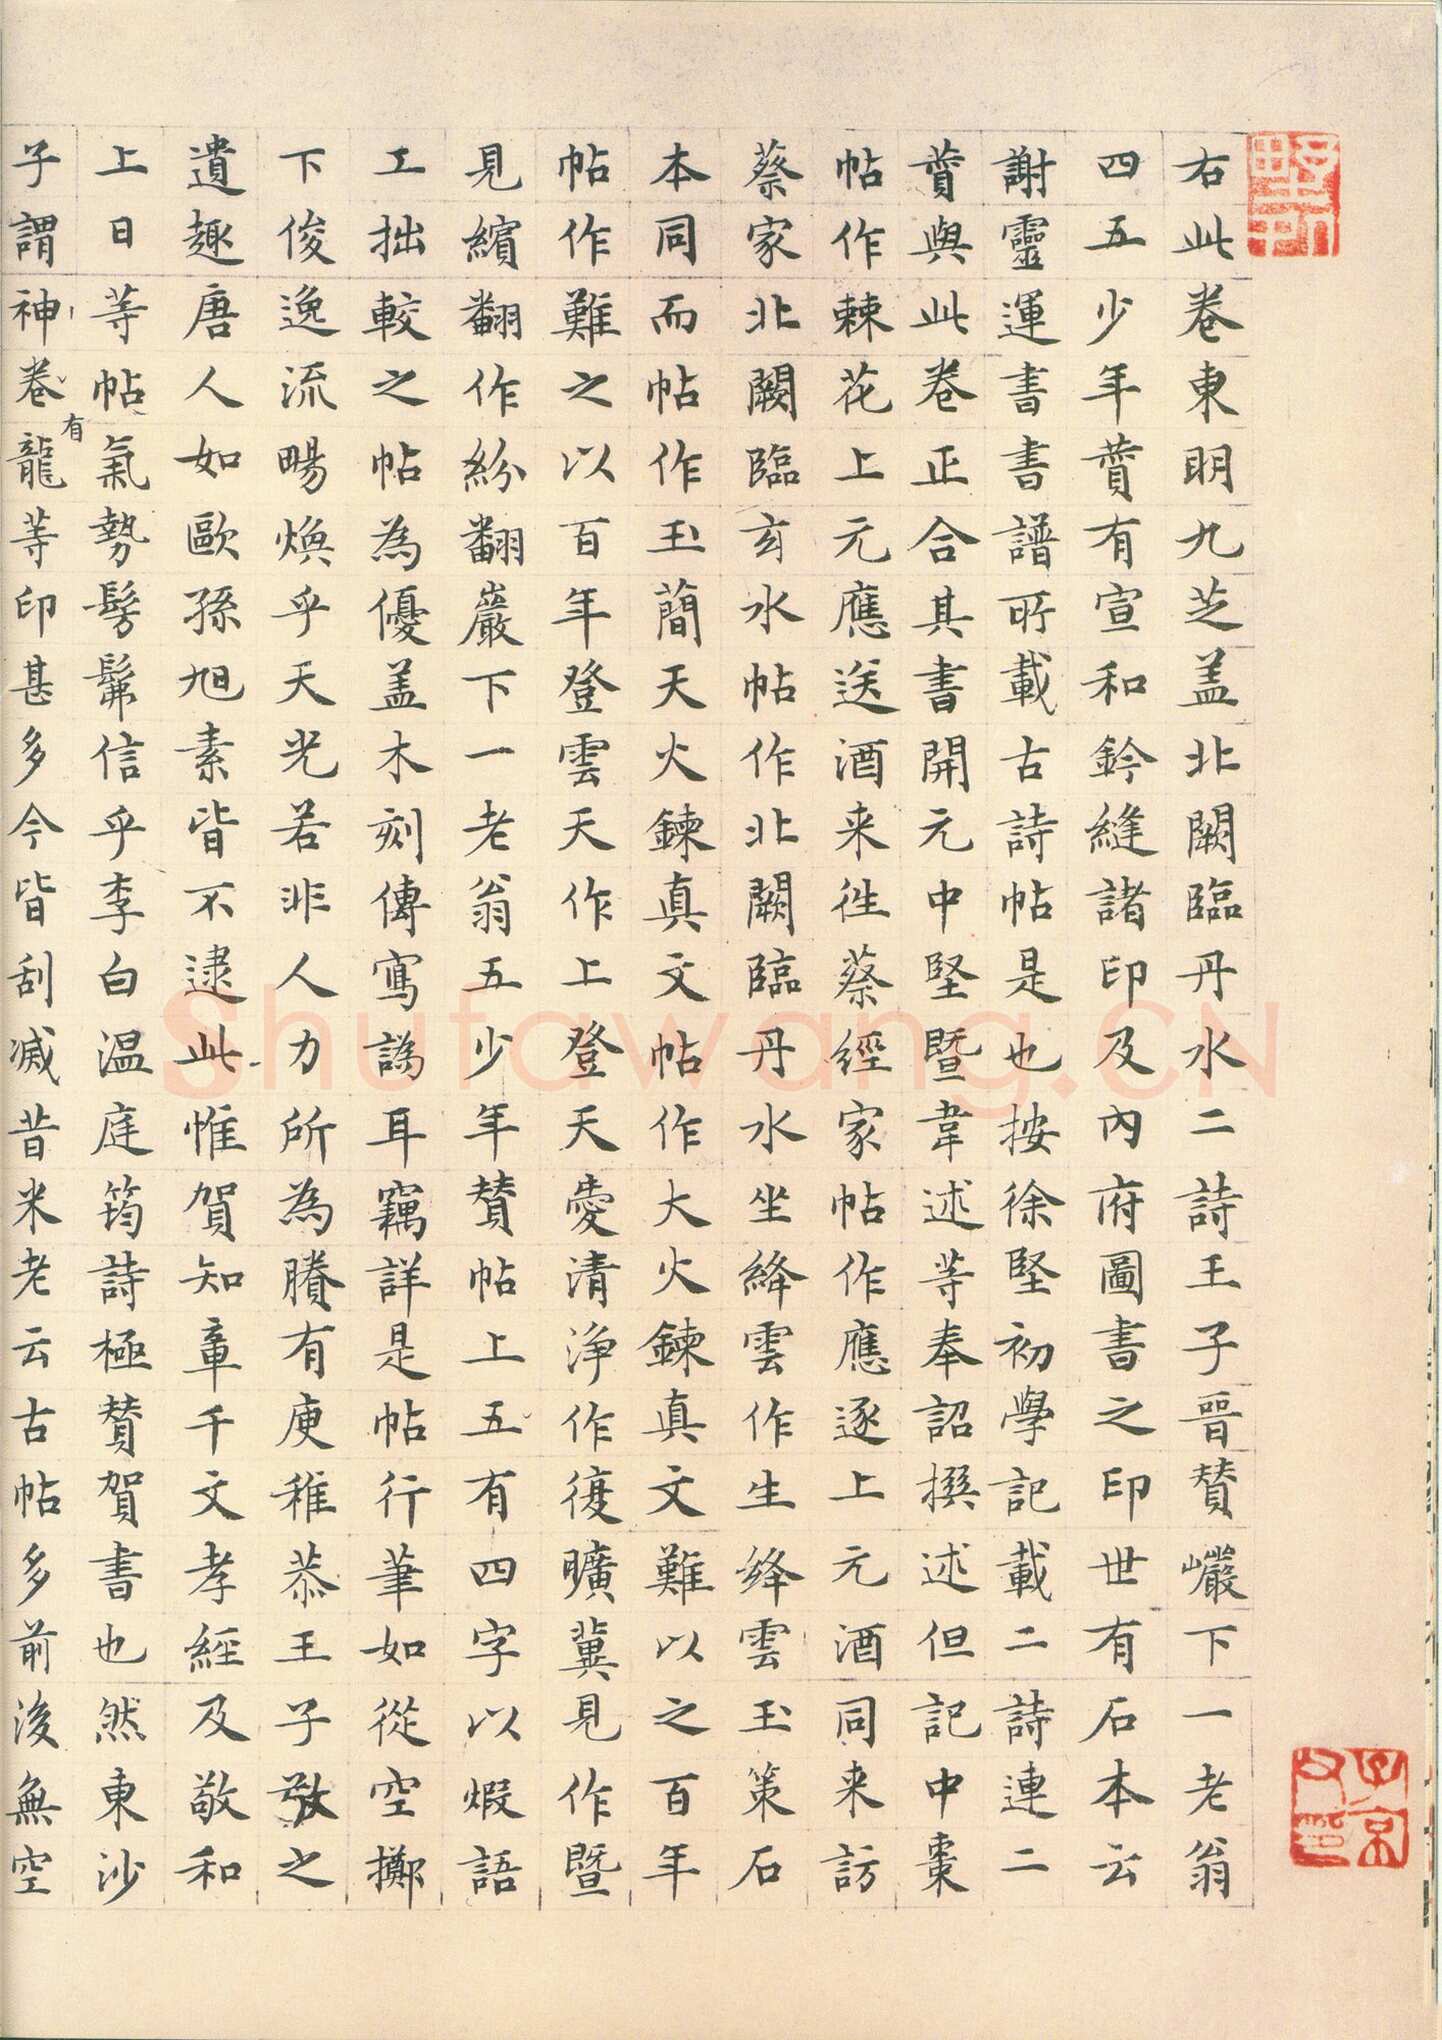 右此卷東明九芝盖北闕臨丹水二詩王子晉賛巗下一老翁
四五少年賛有宣和鈐縫諸印及內府圖書之印世有石本云
謝靈運書書譜所載古詩帖是也按徐堅初學記載二詩連二
賛與此卷正合其書開元中堅暨韋述等奉詔撰述但記中棗
帖作棘花上元應送酒来徃蔡經家帖作應逐上元酒同来訪
蔡家北闕臨玄水帖作北闕臨丹水坐絳雲作生絳雲玉策石
本同而帖作玉蕳天火鍊真文帖作大火鍊真文難以之百年
帖作難之以百年登雲天作上登天愛清淨作復曠冀見作暨
見繽翻作紛翻巖下一老翁五少年賛帖上五有四字以煆語
工拙較之帖為優盖木刻傳寫譌耳竊詳是帖行筆如從空擲
下俊逸流暢煥乎天光若非人力所為賸有庾稚恭王子敬之
遺趣唐人如歐孫旭素皆不逮此惟賀知章千文孝經及敬和
上日等帖氣勢髣髴信乎李白温庭筠詩極賛賀書也然東沙
子謂神卷有龍等印甚多今皆刮滅昔米老云古帖多前後無空
Shufawang.CN